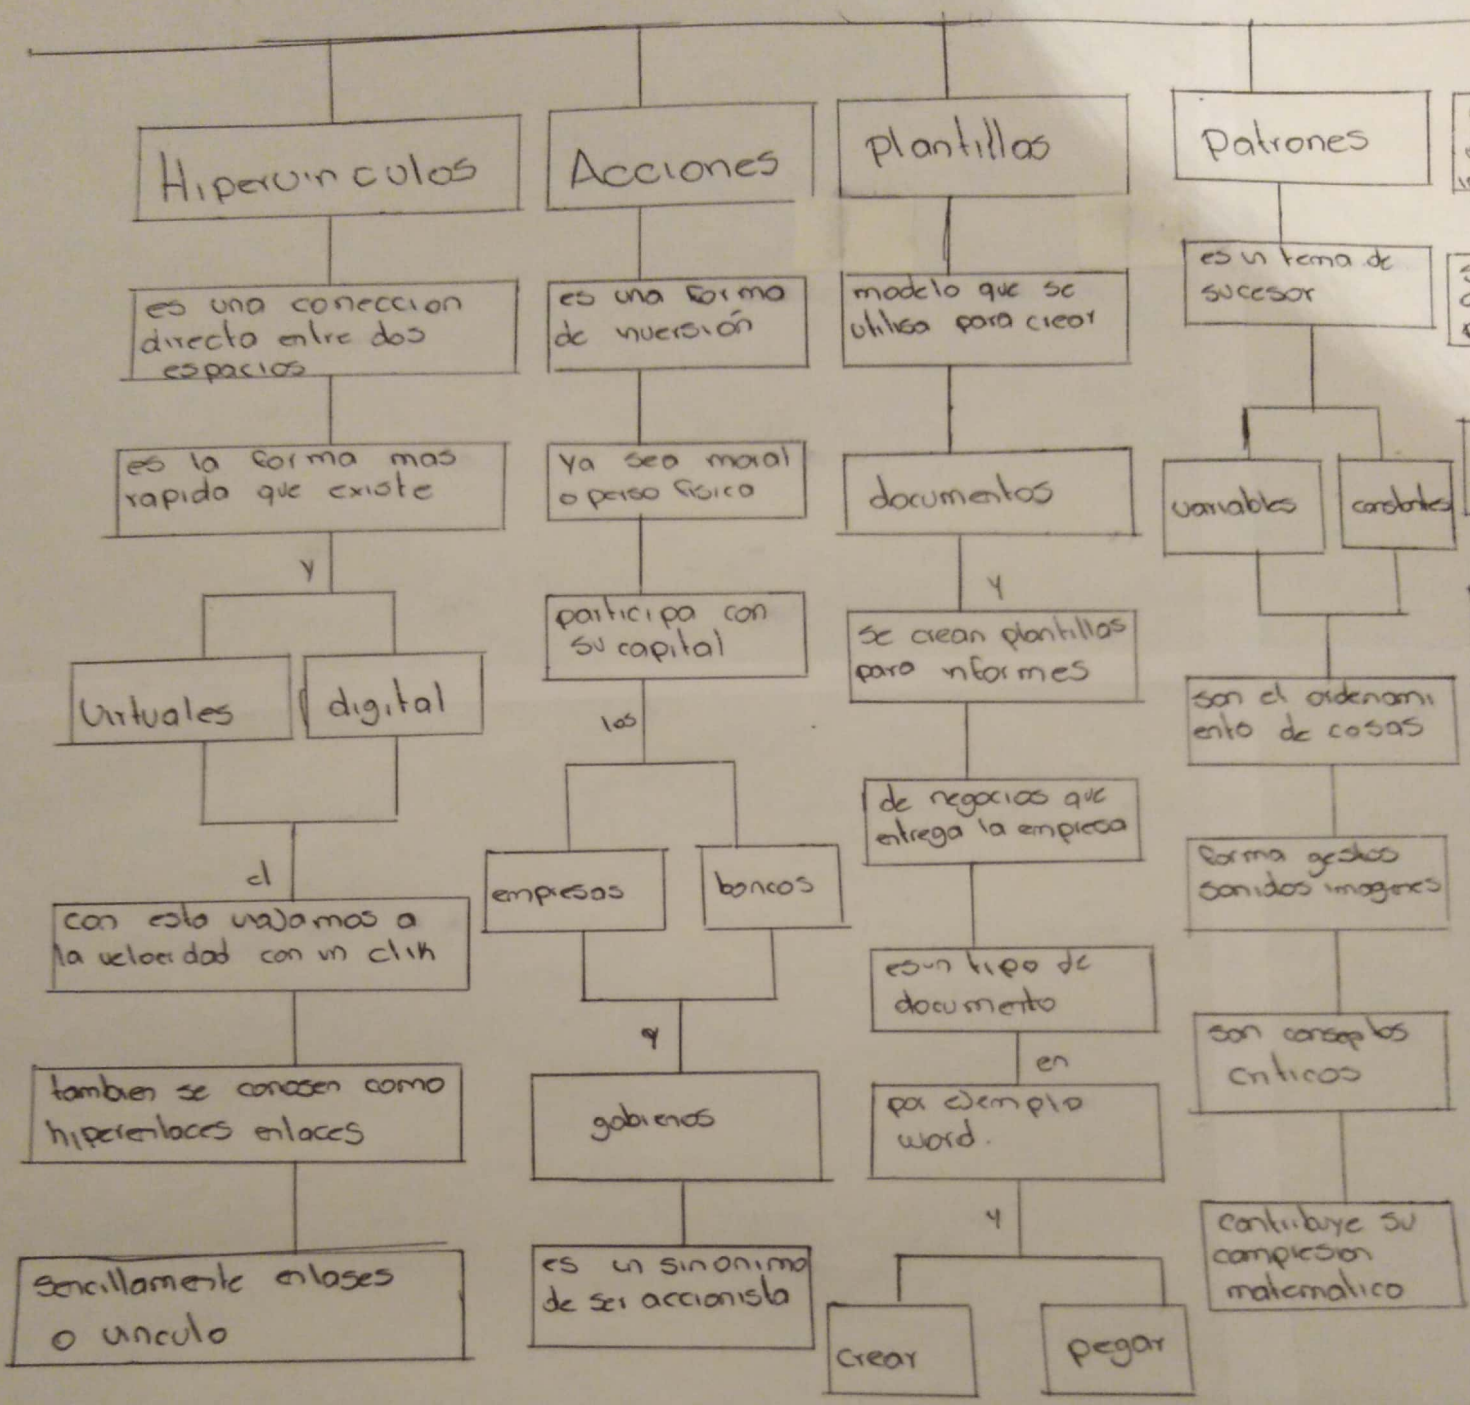 Hipervinculos
es una coneccion
directa entre dos
espacios
es la forma mas
rapida que existe
y
Virtuales
digital
el
con esto viajamos a
la velocidad con un clik
tambien se conosen como
hiperenlaces enlaces
sencillamente enlases
o vinculo
Acciones
es una forma
de inversión
ya sea moral
o perso fisica
participa con
su capital
los
empresas
bancos
y
gobienos
es un sinonimo
de ser accionista
plantillas
modelo que se
utilisa para crear
documentos
y
se crean plantillas
para informes
de negocios que
entrega la empresa
es un tipo de
documento
en
por ejemplo
word.
y
crear
pegar
Patrones
es un tema de
sucesor
variables
constantes
son el ordenami
ento de cosas
forma gestos
sonidos imagenes
son conseptos
criticos
contribuye su
compresion
matematico